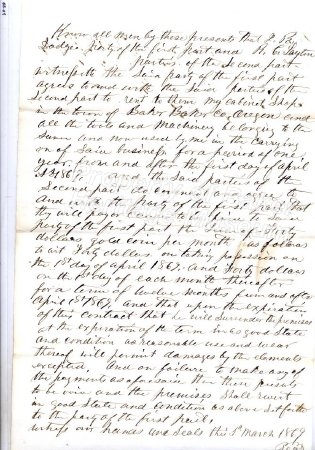 Know all men by these presents that I
Dodge party of the first part and H. C. Layton
parties of the second part
witnesseth the said party of the first part
agrees to and with the said parties of the
second part to rent to them my cabinet Shop
in the town of Baker Baker Co, Oregon and
all the tools and Machinery belonging to the
same and now used by me in the Carrying
on of said business for a period of one
year from and after the first day of April
A D 1869. and the said parties of the
Second part do covenant and agree to
and with the party of the first part that
they will pay or cause to be paid to said
party of the first part the sum of Forty
dollars gold coin per month as follows
to wit Forty dollars on taking possession on
the 1st day of April 1869. and Forty dollars
on the 1st day of each month thereafter
for a term of twelve months from and after
April 1st 1869, and that upon the expiration
of this contract that he will surrender the premises
at the expiration of the term in as good State
and condition as reasonable use and wear
thereof will permit damages by the elements
excepted. and on failure to make any of
the payments as aforesaid then these presents
to be void and the premises shall revert
in good State and condition as above set forth
to the party of the first part.
witness our hands and Seals this 1st March 1869